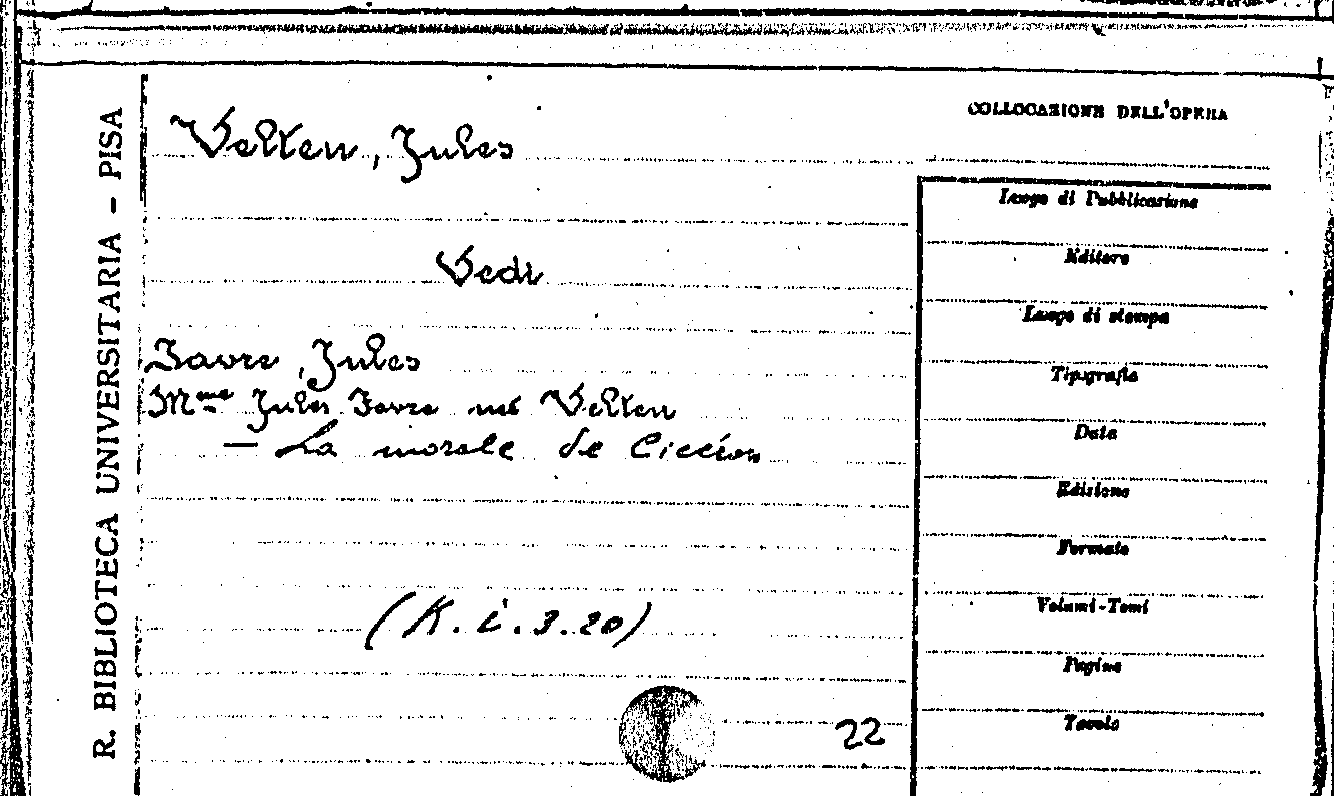 R. BIBLIOTECA UNIVERSITARIA – PISA
Velten, Jules
Vedi
Favre, Jules
Mme Jules Favre né Velten
— La morale de Cicéron
(K. i. 3. 20)
22
COLLOCAZIONE DELL'OPERA
Luogo di Pubblicazione
Editore
Luogo di stampa
Tipografia
Data
Edizione
Formato
Volumi-Tomi
Pagine
Tavole